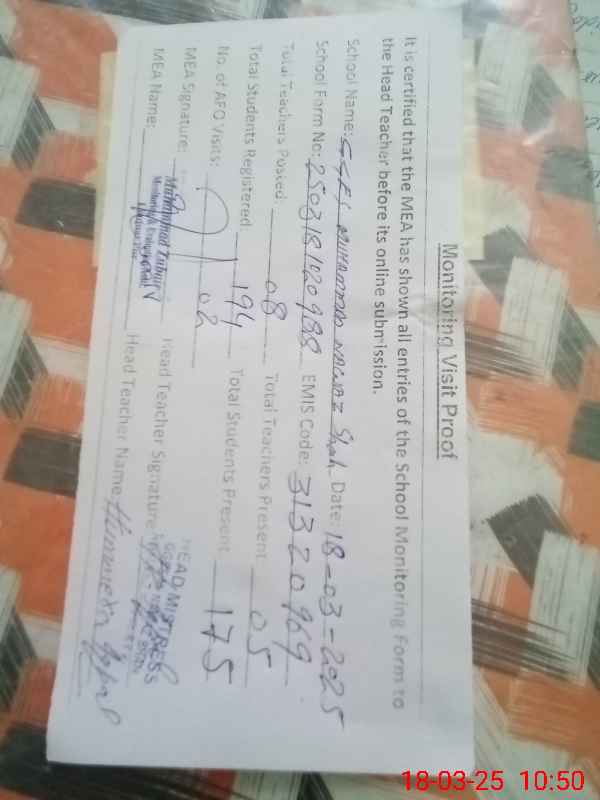 Monitoring Visit Proof
It is certified that the MEA has shown all entries of the School Monitoring Form to
the Head Teacher before its online submission.
School Name: MUHAMMAD NAWAZ Shah Date: 18-03-2025
School Form No: 2503181020988 EMIS Code: 31320969
Total Teachers Posted: 08 Total Teachers Present 05
Total Students Registered: 194 Total Students Present 175
No. of AEO Visits: 02
MEA Signature: Head Teacher Signature HEAD MISTRESS
MEA Name: Muhammad Head Teacher Name:
18-03-25 10:50